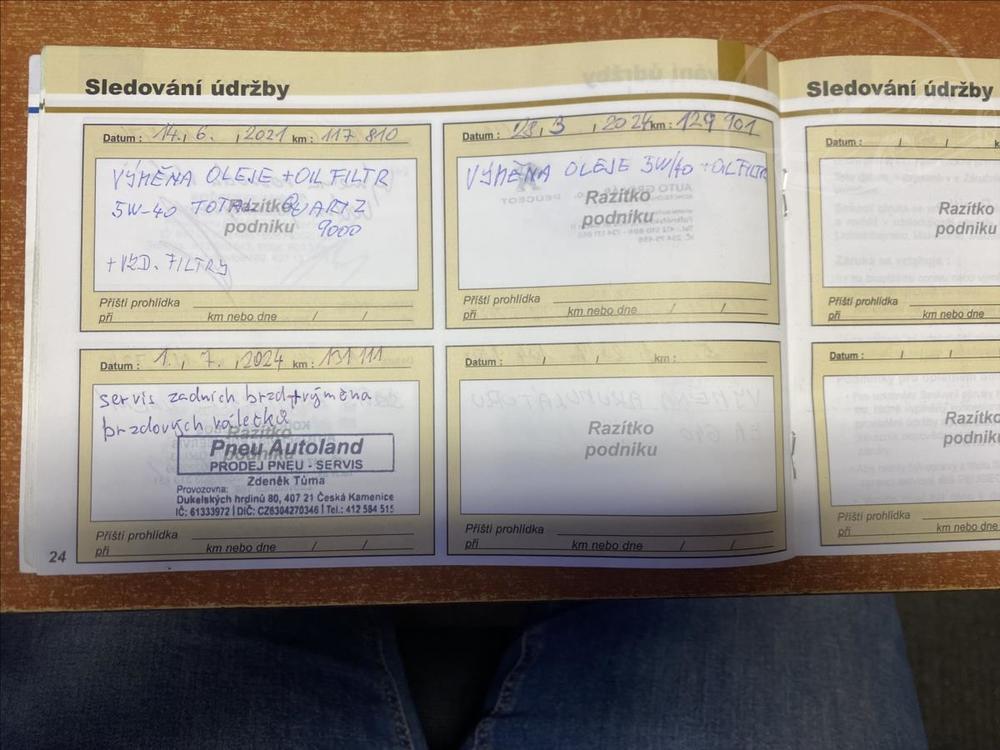 Sledování údržby
Datum : 14. 6. , 2021 km : 117 810
VÝMĚNA OLEJE + OIL FILTR
5W-40 TOTAL QUARTZ
9000
Razítko
podniku
+ VZD. FILTRY
Příští prohlídka
při km nebo dne / /
Datum : 3 , 2024 km : 129 901
VÝMĚNA OLEJE 5W/40 + OIL FILTR
Razítko
podniku
Příští prohlídka
při km nebo dne / /
Datum : 1. , 7. , 2024 km : 131 111
servis zadních brzd + výměna
brzdových válečků
Razítko
Pneu Autoland
PRODEJ PNEU - SERVIS
Zdeněk Tůma
Provozovna:
Dukelských hrdinů 80, 407 21 Česká Kamenice
IČ: 61333972 | DIČ: CZ6304270346 | Tel.: 412 584 515
Příští prohlídka
při km nebo dne / /
Datum : / / km :
Razítko
podniku
Příští prohlídka
při km nebo dne / /
24
Sledování údržby
Datum : / /
Razítko
podniku
Příští prohlídka
při km nebo dne
Datum : / /
Příští prohlídka
při km nebo dne